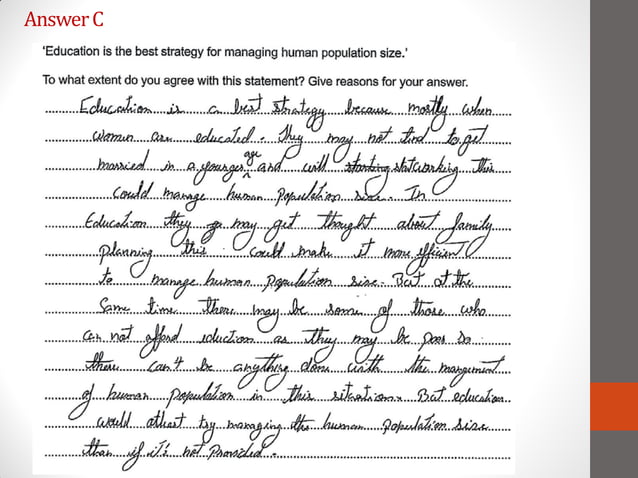 Answer C
'Education is the best strategy for managing human population size.'
To what extent do you agree with this statement? Give reasons for your answer.
Education is a best strategy because mostly when
women are educated. They may not tind to get
married in a younger age and will starting statworking This
could manage human population size. In
Education they go may get thought about family
planning this could make it more efficient
to manage human population size. But at the
same time there may be some of those who
can not afford eduction as they may be poor so
there can't be anything done with the mangement
of human population in this situations. But education
would atleast try managing the human population size
than if it's not provided.